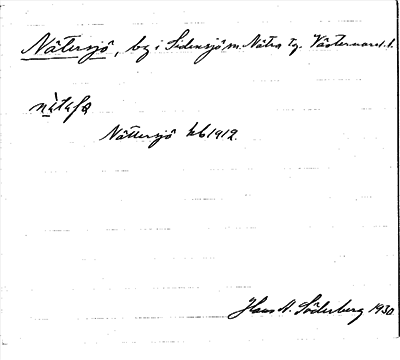 Nätersjö, by i Sidensjö sn. Nätra tg. Västernorrl. l.
Nättersjö kb 1912.
Hans N. Söderberg 1930